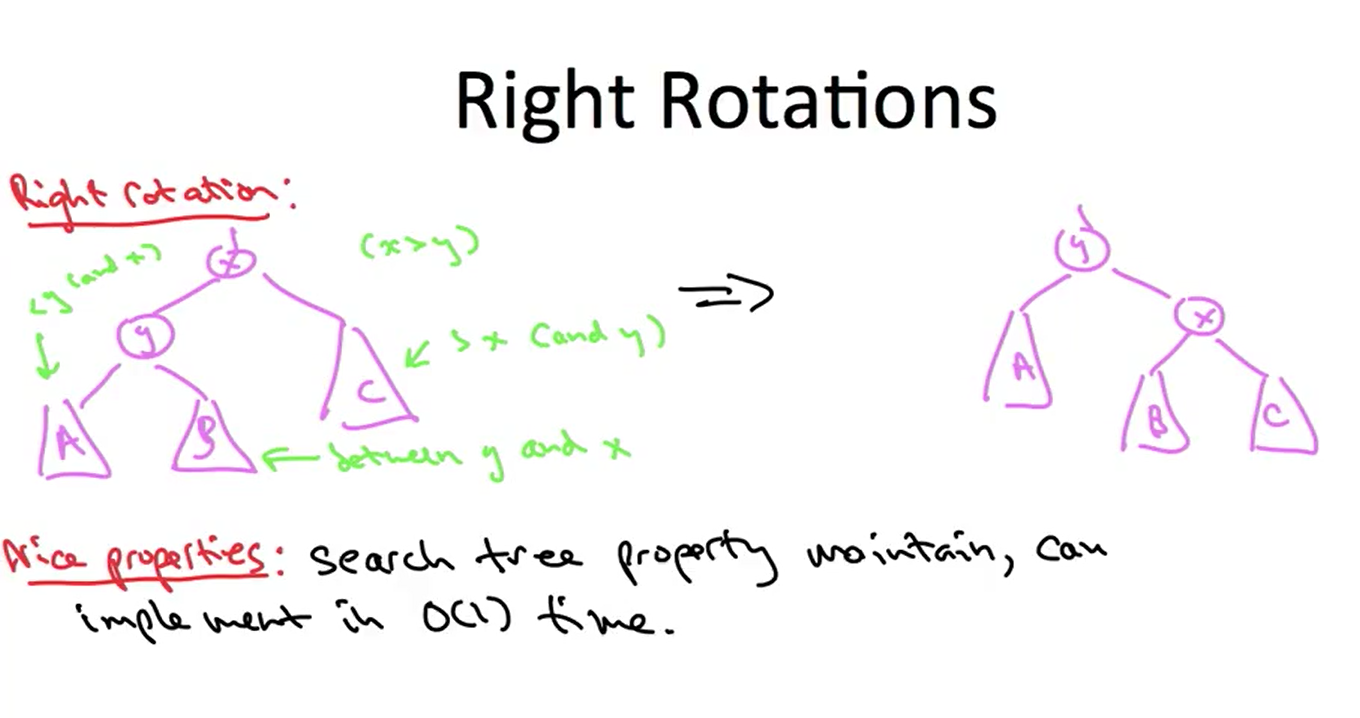 Right Rotations
Right rotation:
<y (and x)
(x>y)
x
y
> x (and y)
C
A
B
between y and x
⇒
y
A
x
B
C
Nice properties: search tree property maintain, can
implement in O(1) time.